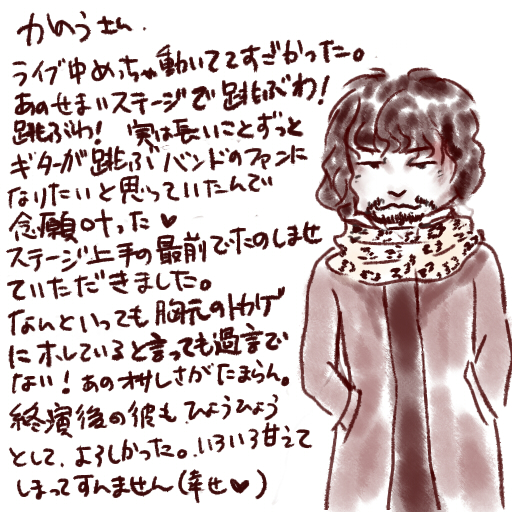 かのうさん
ライブ中めっちゃ動いててすごかった。
あのせまいステージで跳ぶわ!
跳ぶわ! 実は長いことずっと
ギターが跳ぶバンドのファンに
なりたいと思っていたんで
念願叶った♥
ステージ上手の最前でたのしませ
ていただきました。
なんといっても胸元のトカゲ
にホレていると言っても過言で
ない!あのオサレさがたまらん。
終演後の彼もひょうひょう
として、よろしかった。いろいろ甘えて
しまってすんません(幸せ♥)